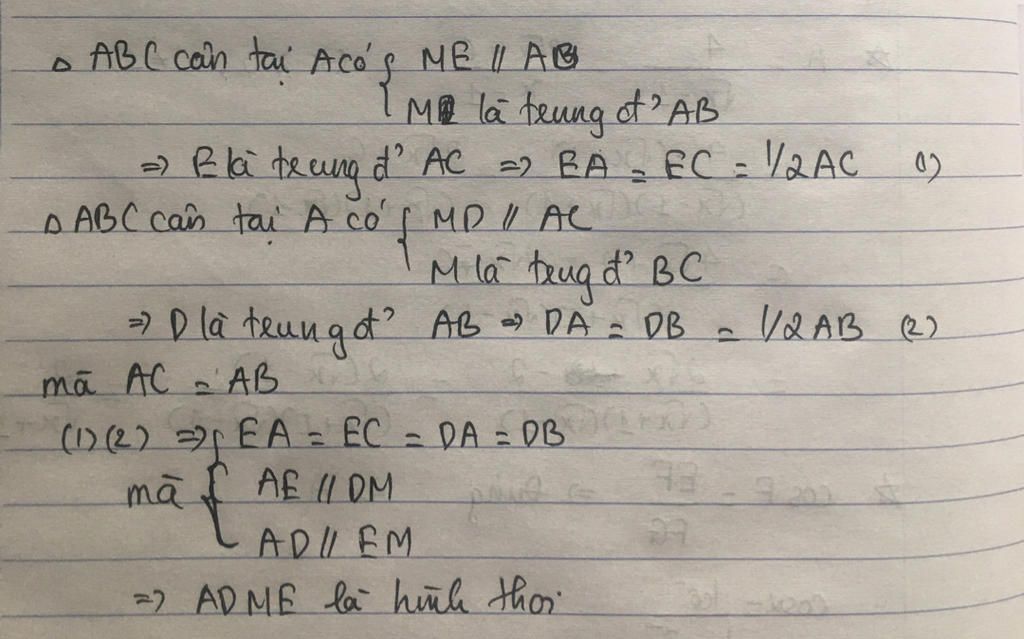 Δ ABC cân tại A có { ME // AB
M là trung đ' AB
=> E là trung đ' AC => EA = EC = 1/2 AC (1)
Δ ABC cân tại A có { MD // AC
M là trug đ' BC
=> D là trung đ' AB => DA = DB = 1/2 AB (2)
mà AC = AB
(1)(2) => { EA = EC = DA = DB
mà { AE // DM
AD // EM
=> ADME là hình thoi